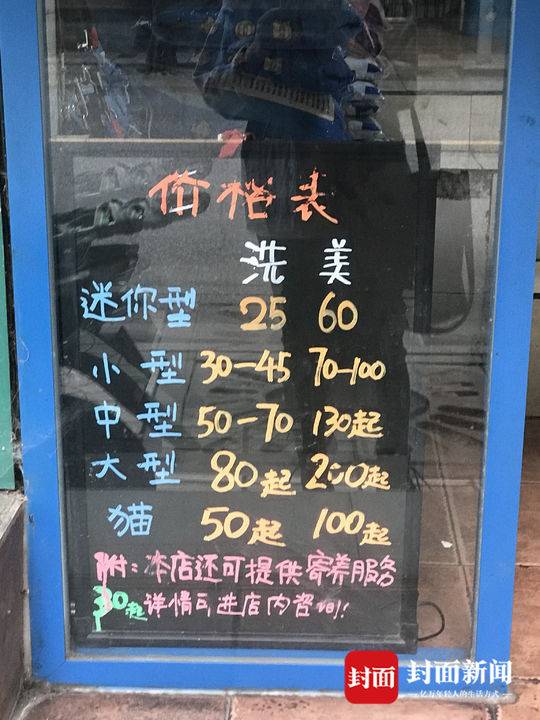 价格表
洗 美
迷你型 25 60
小型 30-45 70-100
中型 50-70 130起
大型 80起 200起
猫 50起 100起
附:本店还可提供寄养服务
30起 详情可进店内咨询!
封面 封面新闻
亿万年轻人的生活方式